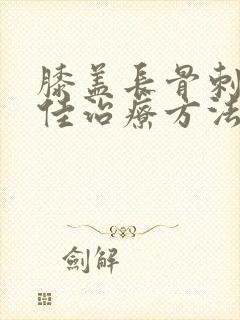 膝盖長骨刺
佳治療方法
劍解